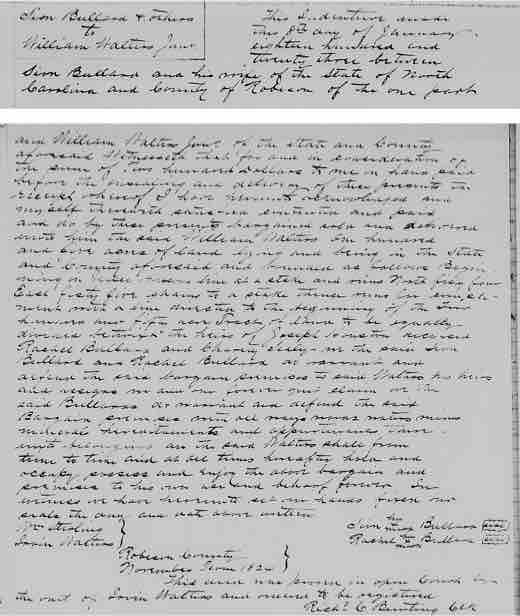 Sion Bullard & others
to
William Walters Junr
This Indenture made
this 8th day of January
eighteen hundred and
twenty three between
Sion Bullard and his wife of the State of North
Carolina and County of Robeson of the one part
and William Walters Junr of the State and County
aforesaid Witnesseth that for and in consideration of
the sum of Two hundred Dollars to me in hand paid
before the ensealing and delivery of these presents the
receipt whereof I have herewith acknowledged and
myself therewith satisfied contented and paid
and do by these presents bargained sold and delivered
unto him the said William Walters one hundred
and five acres of land lying and being in the State
and County aforesaid and bounded as follows Begin
ning at line at a stake and runs North fifty four
East fifty five chains to a stake thence runs for comple-
ment with a line direction to the beginning of the Two
hundred and fifty acre Tract of land to be equally
divided between the heirs of Joseph Houston deceased
Rachel Bullard and Charity and the said Sion
Bullard and Rachel Bullard do warrant and
defend the said bargain premises to said Walters his heirs
and assigns in and on forever our claim or the
said Bullards do warrant and defend the said
Bargain premises with all ways woods waters mines
minerals hereditaments and appurtenances
unto belonging and the said Walters shall from
time to time and at all times hereafter hold and
occupy possess and enjoy the above bargain and
premises to his own use and behoof forever In
witness we have herewith set our hands given our
seals the day and date above written
Wm
Isvin Walters
Sion his mark Bullard seal
Rachel her mark Bullard seal
Robeson County
November Term 1824
This deed was proven in open Court by
the oath of Isvin Walters and ordered to be registered
Richd C Bunting Clk